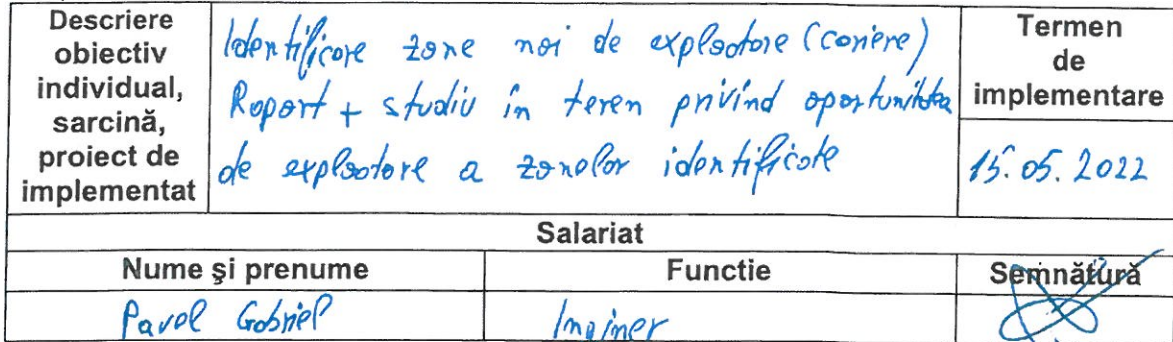 Descriere
obiectiv
individual,
sarcină,
proiect de
implementat
Identificare zone noi de exploatare (cariere)
Raport + studiu în teren privind oportunitatea
de exploatare a zonelor identificate
Termen
de
implementare
15.05.2022
Salariat
Nume şi prenume
Functie
Semnătură
Pavel Gabriel
Inginer